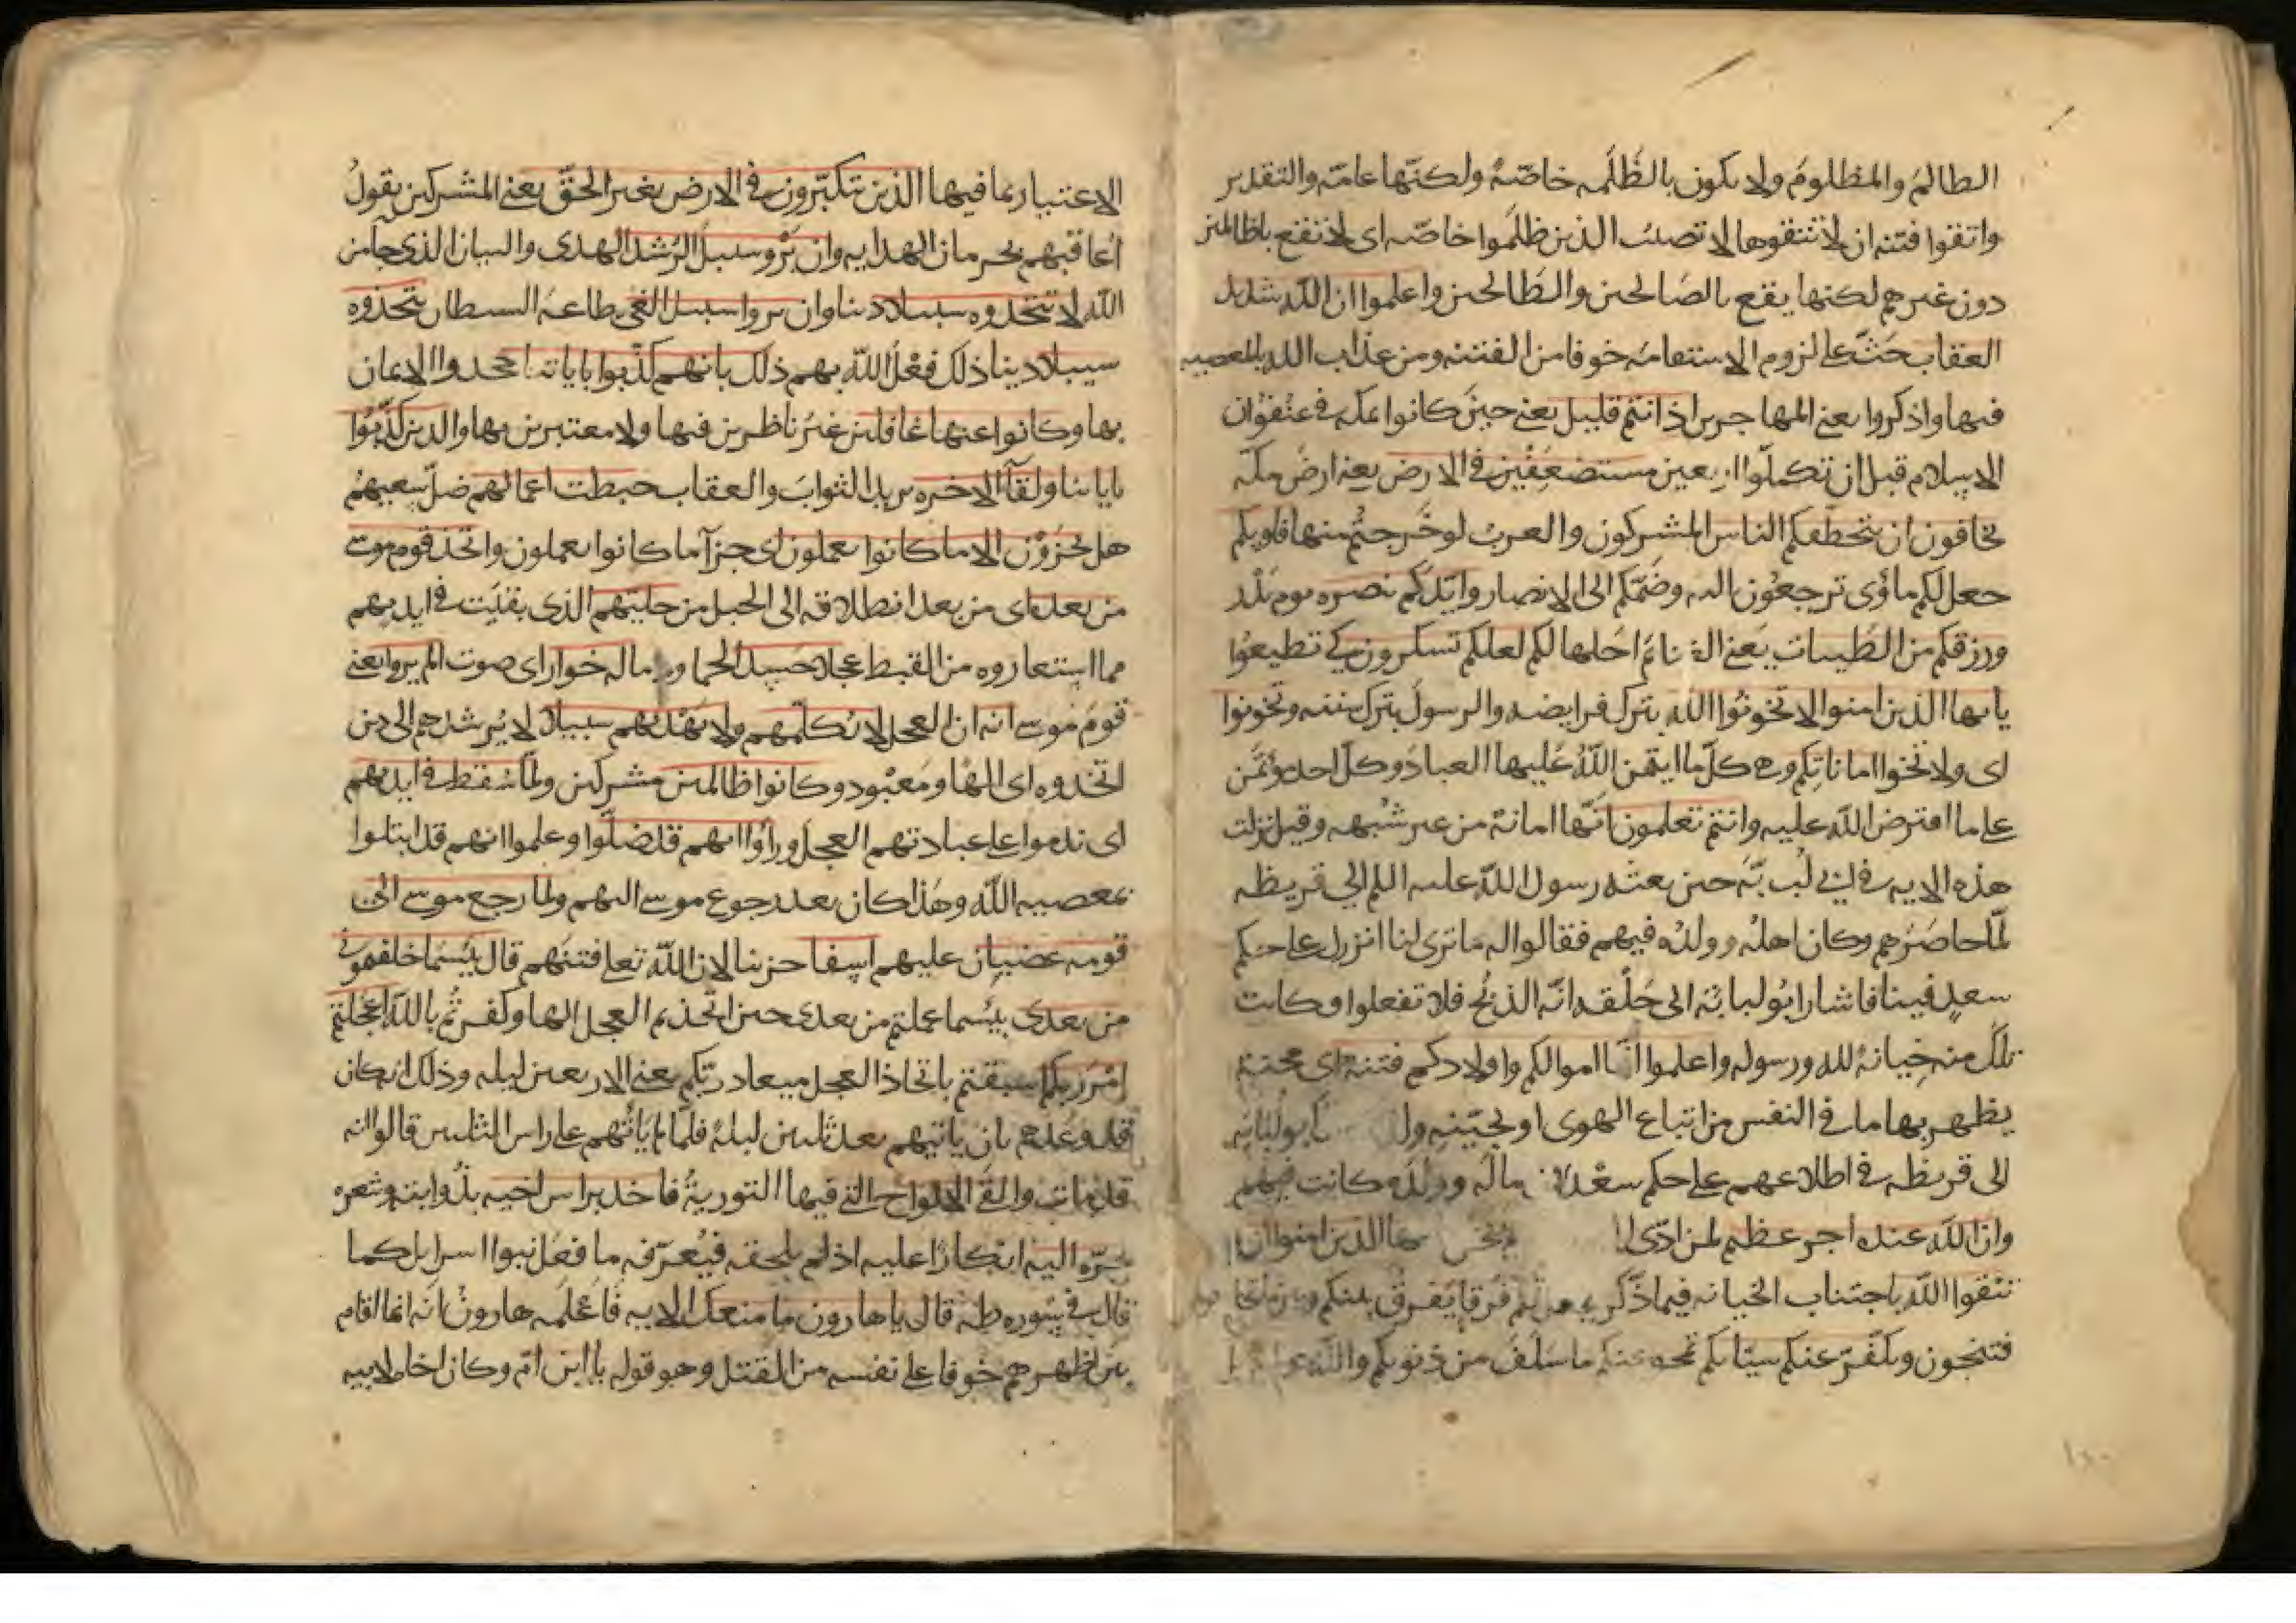 الظالم والمظلوم ولا يكون بالظلمه خاصّة ولكنّها عامّة والتقدير
واتقوا فتنه ان لا تتقوها لا تصيبُ الذين ظلموا خاصّه اى لا تقع باظالمين
دون غيرهم لكنها يقع بالصَالحين والطَالحين واعلموا ان اللّه شديد
العقاب حَثّ على لزوم الاستقامه خوفا من الفتنه ومن عذاب الله بالمعصيه
فيها واذكروا يعنى المهاجرين اذ انتم قليل يعنى حينَ كانوا بمكه فى عنْفوُان
الاسلام قبل ان تكملّوا اربعين مستضعَفين فى الارض يعنى ارضَ مكّه
تخافون ان يتخطّفكم الناس المشركون والعربُ لو خَرجتُم منها فاويكم
جعل لكم ماوًى ترجعُون اليه وضَمّكم الى الانصار وايّدكم بنصره يوم بَدْد
ورزقكم من الطّيبات يَعنى الغنائمَ احَلها لكم لعلكم تشكرون كى تطيعوُا
يايها الذين امنوا لا تخونُوا اللّه بتركِ فرايضه والرسولَ بترك سنته وتخونوا
اى ولا تخوا اماناتكم وهى كلّ ما ايتمن اللّهُ عَليها العبادَ وكلّ احد مؤتمَن
على ما افترض اللّه عليه وانتم تعلمون انّها امانةٌ من غير شُبهه وقيل نزلت
هذه الايه فى ابى لُبابَه حين بعثه رسول اللّه عليه السلم الى قريظه
لمّا حاصَرهم وكان اهلُه وولدُه فيهم فقالوا له ما ترى لنا اننزل على حكم
سعدٍ فينا فاشار ابُو لبابة الى حَلْقه انّه الذبْحُ فلا تفعلوا وكانت
تلك منه خِيانةً لله ورسوله واعلموا انّما اموالكم واولادكم فتنه اى محنةٌ
يظهر بها ما فى النفس من اتباع الهوى او تجنّبه ابو لبُابَه
الى قريظه فى اطلاعهم على حكم سعْد ماله وولدَه كانت فيهم
وانّ اللّه عنده اجر عظيم لمن ادّى الذين امنوا ان
تتقوا اللّه باجتناب الخيانه فيما ذُكر يجعل لكم فُرقانا يَفرق بينكم وبين ما تخا
فتنجون ويكفّر عنكم سيّاتكم يمحو عنكم ما سَلَفَ من ذنوبكم واللّه
الاعتبار بما فيها الذين يتكبّرون فى الارض بغير الحقّ يعنى المشركين يقولُ
اُعاقبُهم بحرمان الهدايه وان يَرَوْ سبيلَ الرّشد الهدى والبيان الذى جا من
اللّه لا يتخذوه سبيلا دينا وان يروا سبيل الغى طاعة الشيطان يتخذوه
سيبلا دينا ذلك فعْلُ اللّه بهم ذلك بانهم كذّبوا باياتنا جحدوا الايمان
بها وكانوا عنها غافلين غيرُ ناظرين فيها ولا معتبرين بها والذين كذّبوُا
باياتنا ولقآ الاخره يريد الثوابَ والعقاب حبطت اعمالهم ضلّ سعيهُم
هل يجزَوْن الا ما كانوا يعملون اى جزآ ما كانوا يعملون واتخذ قوم موسى
من بعده اى من بعد انطلاقه الى الجبل من حليّهم الذى بقيَت فى ايديهم
مما استعاروه من القبط عجلا جَسدا لحما ودما له خوار اى صوت الم يروا يعنى
قومَ مُوسى انه ان العجل لا يُكلّمهم ولا يَهْديهم سبيلا لا يُرشدهم الى دين
اتخذوه اى الهًا ومَعْبود وكانوا ظالمين مشركين ولمّا سُقط فى ايديهم
اى ندموا على عبادتهم العجل ورأوْا انهم قد ضلّوا وعلموا انهم قد ابتلوا
بمعصيه اللّه وهَذا كان بعد رجوع موسى اليهم ولمّا رجع موسى الى
قومه غضبان عليهم اسِفا حزينا لان اللّه تعالى فتنَهم قال بيْسَما خلفتمونى
من بعدى بيْسما عملتم من بعدى حين اتّخذتم العجل الها وكفرتُم باللّه اعَجلتم
امْرَ ربكم اسبقتم باتخاذ العجل ميعاد ربّكم يعنى الاربعين ليله وذلك انه كان
قد وعَدهم بان ياتيهم بعد ثلثين ليلةً فلمّا لم يَاتهم على راس الثلثين قالوا انه
قد مات والقَى الالواح التى فيها التوريةُ فاخذ براس اخيه بذُوابته وشعره
يجرّه اليه انكارًا عليه اذ لم يلحقه فيُعرّفه ما فعَل بنوا اسرايل كما
قال فى سُوره طه قال ياهارون ما منعك الايه فاَعْلَمه هارونُ انَه انما اقام
بين اظهرهم خوفا على نفسه من القتل وهو قوله يا ابن امّ وكان اخاه لابيه